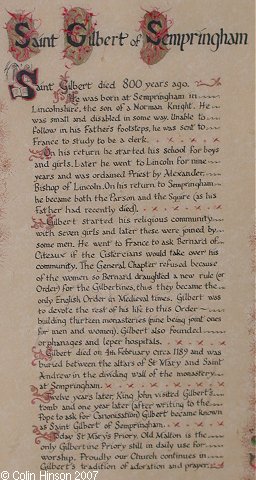 Saint Gilbert of Sempringham
Saint Gilbert died 800 years ago.
He was born at Sempringham in
Lincolnshire, the son of a Norman Knight. He
was small and disabled in some way. Unable to
follow in his Father's footsteps, he was sent to
France to study to be a clerk.
On his return he started his School for boys
and girls. Later he went to Lincoln for nine
years and was ordained Priest by Alexander,
Bishop of Lincoln. On his return to Sempringham
he became both the Parson and the Squire (as his
Father had recently died).
Gilbert started his religious community
with seven girls and later these were joined by
some men. He went to France to ask Bernard of
Citeaux if the Cistercians would take over his
community. The General Chapter refused because
of the women so Bernard draughted a new rule (or
Order) for the Gilbertines, thus they became the
only English Order in Medieval times. Gilbert was
to devote the rest of his life to this Order
building thirteen monasteries (nine being joint ones
for men and women). Gilbert also founded
orphanages and leper hospitals.
Gilbert died on 4th February circa 1189 and was
buried between the altars of St Mary and Saint
Andrew in the dividing wall of the monastery
at Sempringham.
Twelve years later, King John visited Gilbert's
tomb and one year later (after writing to the
Pope to ask for Canonisation) Gilbert became known
as Saint Gilbert of Sempringham.
Today St Mary's Priory, Old Malton is the
only Gilbertine Priory still in daily use for
worship. Proudly our Church continues in
Gilbert's tradition of adoration and prayer.
© Colin Hinson 2007